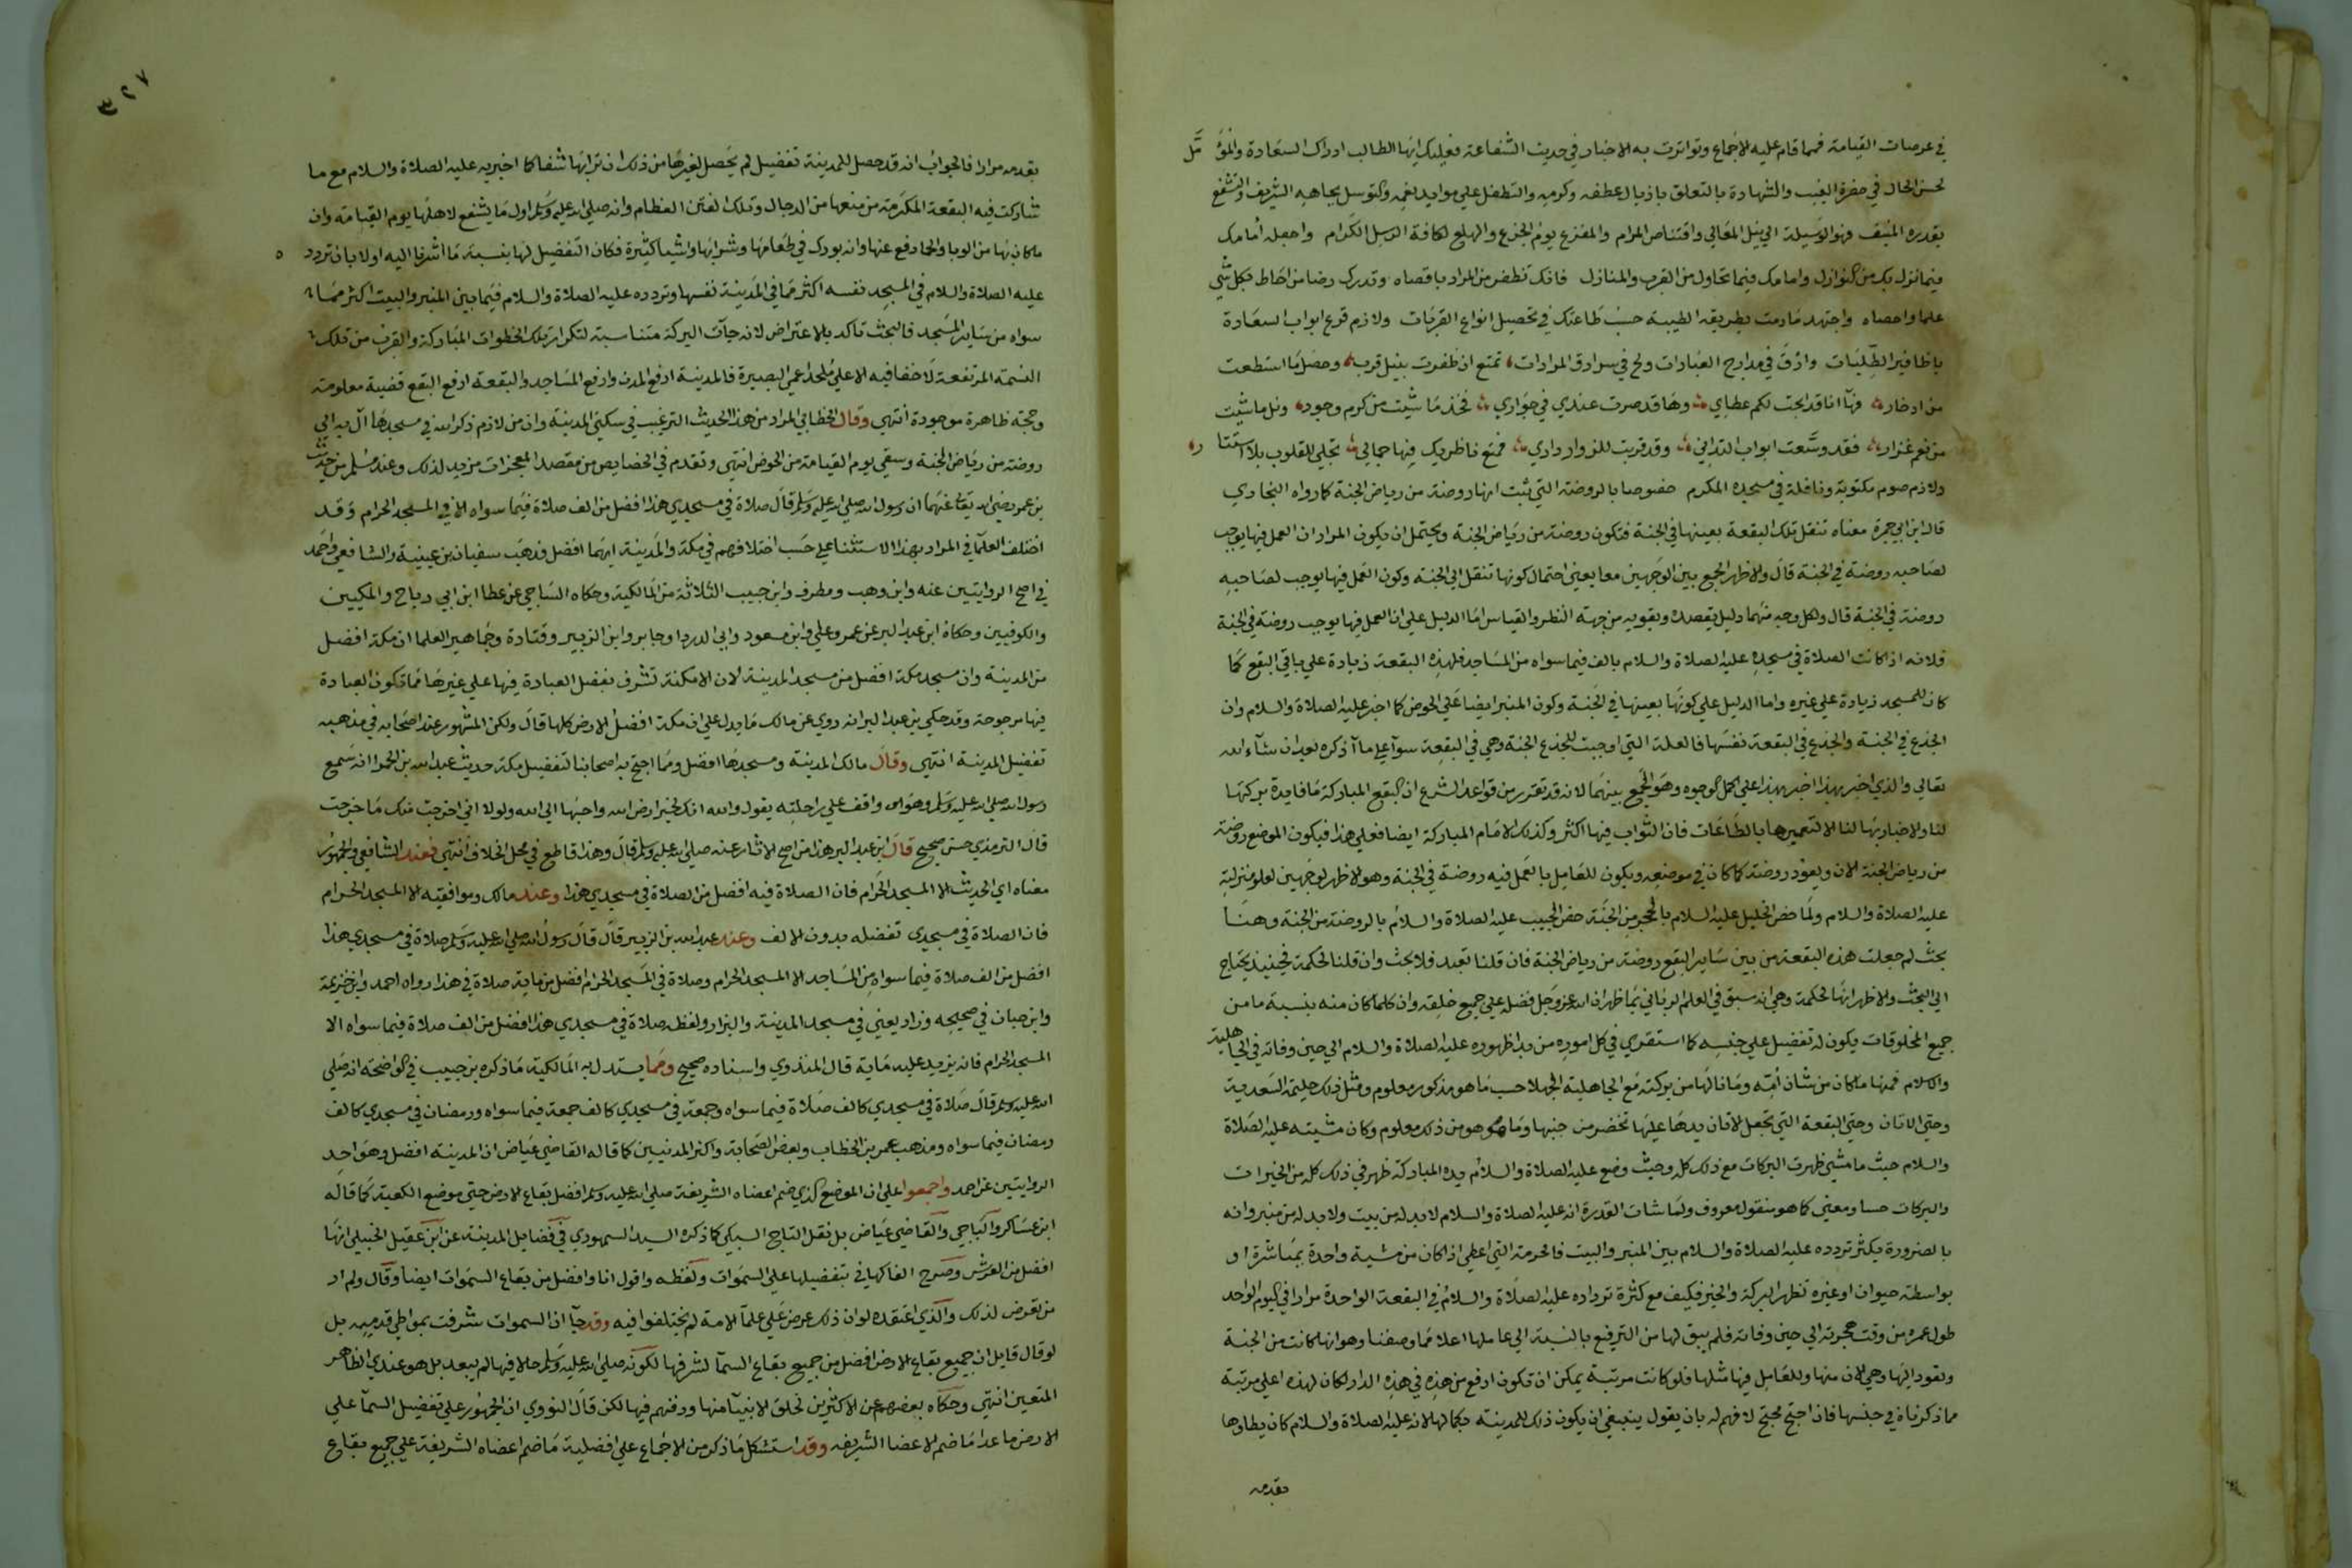 في عرصات القيامة فمما قام عليه الاجماع وتواترت به الاخبار في حديث الشفاعة فعليك ايها الطالب ادراك السعادة والمؤمل
لحسن الحال في حضرة الغيب والشهادة بالتعلق باذيال عطفه وكرمه والتطفل علي موايد نعمه والتوسل بجاهه الشريف والتشفع
بقدره المنيف فهو الوسيلة الي نيل المعالي واقتناص المرام والمفزع يوم الجزع والهلع لكافة الرسل الكرام واجعله امامك
فيما نزل بك من النوازل وامامك فيما تحاول من القرب والمنازل فانك تظفر من المراد باقصاه وتدرك رضا من احاط بكل شي
علما واحصاه واجتهد مادمت بطريقه الطيبة حسب طاعتك في تحصيل انواع القربات ولازم قرع ابواب السعادة
باظافير الطلبات وارق في مدارج العبادات ولج في سرادق المرادات تمتع ان ظفرت بنيل قرب وحصل ما استطعت
من ادخار فها انا قد ابحت لكم عطاي وها قد صرت عندي في جواري فخذ ما شيت من كرم وجود ونل ما شيت
من نعم غزار فقد وسعت ابواب التداني وقد قربت للزوار داري فمتع ناظريك فها جمالي تجلي للقلوب بلا استتار
ولازم صوم مكتوبة ونافلة في مسجده المكرم خصوصا بالروضة التي ثبت انها روضة من رياض الجنة كما رواه البخاري
قال ابن ابي جمرة معناه تنقل تلك البقعة بعينها في الجنة فتكون روضة من رياض الجنة ويحتمل ان يكون المراد ان العمل فيها يوجب
لصاحبه روضة في الجنة قال والاظهر الجمع بين الوجهين معا يعني احتمال كونها تنقل الي الجنة وكون العمل فيها يوجب لصاحبه
روضة في الجنة قال ولكل وجه منهما دليل يعضده ويقويه من جهة النظر والقياس اما الدليل علي ان العمل فيها يوجب روضة في الجنة
فلانه اذا كانت الصلاة في مسجده عليه الصلاة والسلام بالف فيما سواه من المساجد فلهذه البقعة زيادة علي باقي البقع كما
كان للمسجد زيادة علي غيره واما الدليل علي كونها بعينها في الجنة وكون المنبر ايضا علي الحوض كما اخبر عليه الصلاة والسلام وان
الجذع في الجنة والجذع في البقعة نفسها فالعلة التي اوجبت للجذع الجنة وهي في البقعة سوآ علي ما آذكره بعد ان شآء الله
تعالي والذي اخبر بهذا اخبر بهذا علي اكمل الوجوه وهو الجمع بينهما لانه قد تقرر من قواعد الشرع ان البقع المباركة ما فايدة بركتها
لنا والاخبار بها لنا الا لتعميرها بالطاعات فان الثواب فيها اكثر وكذلك الايام المباركة ايضا فعلي هذا فيكون الموضع روضة
من رياض الجنة الان ويعود روضة كما كان في موضعه ويكون للعامل بالعمل فيه روضة في الجنة وهو الاظهر لوجهين لعلو منزلته
عليه الصلاة والسلام ولما خص الخليل عليه السلام بالحجر من الجنة خص الحبيب عليه الصلاة والسلام بالروضة من الجنة وهنا
بحث لم جعلت هذه البقعة من بين ساير البقع روضة من رياض الجنة فان قلنا تعبد فلا بحث وان قلنا لحكمة فحينيذ يحتاج
الي البحث والاظهر انها لحكمة وهي انه سبق في العلم الرباني بما ظهر ان الله عز وجل فضله علي جميع خلقه وان كلما كان منه بنسبة ما من
جميع المخلوقات يكون له تفضيل علي جنسه كما استقري في كل اموره من بدا ظهوره عليه الصلاة والسلام الي حين وفاته في الجاهلية
والاسلام فمنها ما كان من شان امه وما نالها من بركته مع الجاهلية الجهلا حسب ما هو مذكور معلوم ومثل ذلك حليمة السعدية
وحتي الاتان وحتي البقعة التي تجعل الاتان يدها عليها تخضر من حينها وما هو من ذلك معلوم وكان مشيته عليه الصلاة
والسلام حيث ما مشي ظهرت البركات مع ذلك كله وحيث وضع عليه الصلاة والسلام يده المباركة ظهر في ذلك كله من الخيرات
والبركات حسا ومعني كما هو منقول معروف ولما شات القدرة انه عليه الصلاة والسلام لا بد له من بيت ولا بد له من منبر وانه
بالضرورة يكثر تردده عليه الصلاة والسلام بين المنبر والبيت فالحرمة التي اعطي اذا كان من مشية واحدة بمباشرة او
بواسطة حيوان او غيره تظهر البركة والخير فكيف مع كثرة ترداده عليه الصلاة والسلام في البقعة الواحدة مرارا في اليوم الواحد
طول عمره من وقت هجرته الي حين وفاته فلم يبق لها من الترفيع بالنسبة الي عالمها اعلا مما وصفنا وهو انها كانت من الجنة
وتعود اليها وهي الان منها وللعامل فيها مثلها فلو كانت مرتبة يمكن ان تكون ارفع من هذه في هذه الدار لكان لهذه اعلي مرتبة
مما ذكرناه في جنسها فان احتج محتج لا فهم له بان يقول ينبغي ان يكون ذلك للمدينة بكمالها لانه عليه الصلاة والسلام كان يطاوها
بقدمه
٣٢٧
بقدمه مرارا فالجواب انه قد حصل للمدينة تفضيل لم يحصل لغيرها من ذلك ان ترابها شفا كما اخبر به عليه الصلاة والسلام مع ما
شاركت فيه البقعة المكرمة من منعها من الدجال وتلك الفتن العظام وانه صلي الله عليه وسلم اول ما يشفع لاهلها يوم القيامة وان
ما كان بها من الوبا والحما رفع عنها وانه بورك في طعامها وشرابها واشيا كثيرة فكان التفضيل لها بنسبة ما اشرنا اليه اولا بان تردده
عليه الصلاة والسلام في المسجد نفسه اكثر مما في المدينة نفسها وتردده عليه الصلاة والسلام فيما بين المنبر والبيت اكثر مما
سواه من ساير المسجد فالبحث تاكد بالاعتراض لانه جآت البركة متناسبة لتكرار تلك الخطوات المباركة والقرب من تلك
النسمة المرتفعة لا خفا فيه الا علي ملحد اعمي البصيرة فالمدينة ارفع المدن وارفع المساجد والبقعة ارفع البقع قضية معلومة
وحجة ظاهرة موجودة انتهي وقال الخطابي المراد من هذا الحديث الترغيب في سكني المدينة وان من لازم ذكر الله في مسجدها آل به الي
روضة من رياض الجنة وسقي يوم القيامة من الحوض انتهي وتقدم في الخصايص من مقصد المعجزات مزيد لذلك وعند مسلم من حديث
بن عمر رضي الله تعالي عنهما ان رسول الله صلي الله عليه وسلم قال صلاة في مسجدي هذا افضل من الف صلاة فيما سواه الا في المسجد الحرام وقد
اختلف العلمآ في المراد بهذا الاستثنا علي حسب اختلافهم في مكة والمدينة ايهما افضل فذهب سفيان بن عيينة والشافعي واحمد
في اصح الروايتين عنه وابن وهب ومطرف وابن حبيب الثلاثة من المالكية وحكاه الساجي عن عطا ابن ابي رباح والمكيين
والكوفيين وحكاه ابن عبد البر عن عمر وعلي وابن مسعود وابي الدردا وجابر وابن الزبير وقتادة وجماهير العلما ان مكة افضل
من المدينة وان مسجد مكة افضل من مسجد المدينة لان الامكنة تشرف بفضل العبادة فيها علي غيرها مما تكون العبادة
فيها مرجوحة وقد حكي بن عبد البر انه روي عن مالك ما يدل علي ان مكة افضل الارض كلها قال ولكن المشهور عند اصحابه في مذهبه
تفضيل المدينة انتهي وقال مالك المدينة ومسجدها افضل ومما احتج به اصحابنا لتفضيل مكة حديث عبد الله بن الحمرا انه سمع
رسول الله صلي الله عليه وسلم وهو واقف علي راحلته يقول والله انك لخير ارض الله واحبها الي الله ولولا اني اخرجت منك ما خرجت
قال الترمذي حسن صحيح قال ابن عبد البر هذا من اصح الاثار عنه صلي الله عليه وسلم قال وهذا قاطع في محل الخلاف انتهي فعند الشافعي والجمهور
معناه اي الحديث الا المسجد الحرام فان الصلاة فيه افضل من الصلاة في مسجدي هذا وعند مالك وموافقيه الا المسجد الحرام
فان الصلاة في مسجدي تفضله بدون الالف وعند عبد الله بن الزبير قال قال رسول الله صلي الله عليه وسلم صلاة في مسجدي هذا
افضل من الف صلاة فيما سواه من المساجد الا المسجد الحرام وصلاة في المسجد الحرام افضل من ماية صلاة في هذا رواه احمد وابن خزيمة
وابن حبان في صحيحه وزاد يعني في مسجد المدينة والبزار ولفظه صلاة في مسجدي هذا افضل من الف صلاة فيما سواه الا
المسجد الحرام فانه يزيد عليه ماية قال المنذري واسناده صحيح ومما يستدل به المالكية ما ذكره بن حبيب في الواضحة انه صلي
الله عليه وسلم قال صلاة في مسجدي كالف صلاة فيما سواه وجمعة في مسجدي كالف جمعة فيما سواه ورمضان في مسجدي كالف
رمضان فيما سواه ومذهب عمر بن الخطاب وبعض الصحابة واكثر المدنيين كما قاله القاضي عياض ان المدينة افضل وهو احد
الروايتين عن احمد واجمعوا علي ان الموضع الذي ضم اعضاه الشريفة صلي الله عليه وسلم افضل بقاع الارض حتي موضع الكعبة كما قاله
ابن عساكر والباجي والقاضي عياض بل نقل التاج السبكي كما ذكره السيد السمهودي في فضايل المدينة عن ابن عقيل الحنبلي انها
افضل من العرش وصرح الفاكهاني بتفضيلها علي السموات ولفظه واقول انا وافضل من بقاع السموات ايضا وقال ولم ار
من تعرض لذلك والذي اعتقده لو ان ذلك عرض علي علمآ الامة لم يختلفوا فيه وقد جآ ان السموات شرفت بمواطي قدميه بل
لو قال قايل ان جميع بقاع الارض افضل من جميع بقاع السمآ لشرفها لكونه صلي الله عليه وسلم حالا فيها لم يبعد بل هو عندي الظاهر
المتعين انتهي وحكاه بعضهم عن الاكثرين لخلق الانبيآ منها ودفنهم فيها لكن قال النووي ان الجمهور علي تفضيل السمآ علي
الارض ما عدا ما ضم الاعضا الشريفه وقد استشكل ما ذكر من الاجماع علي افضلية ما ضم اعضاه الشريفة علي جميع بقاع